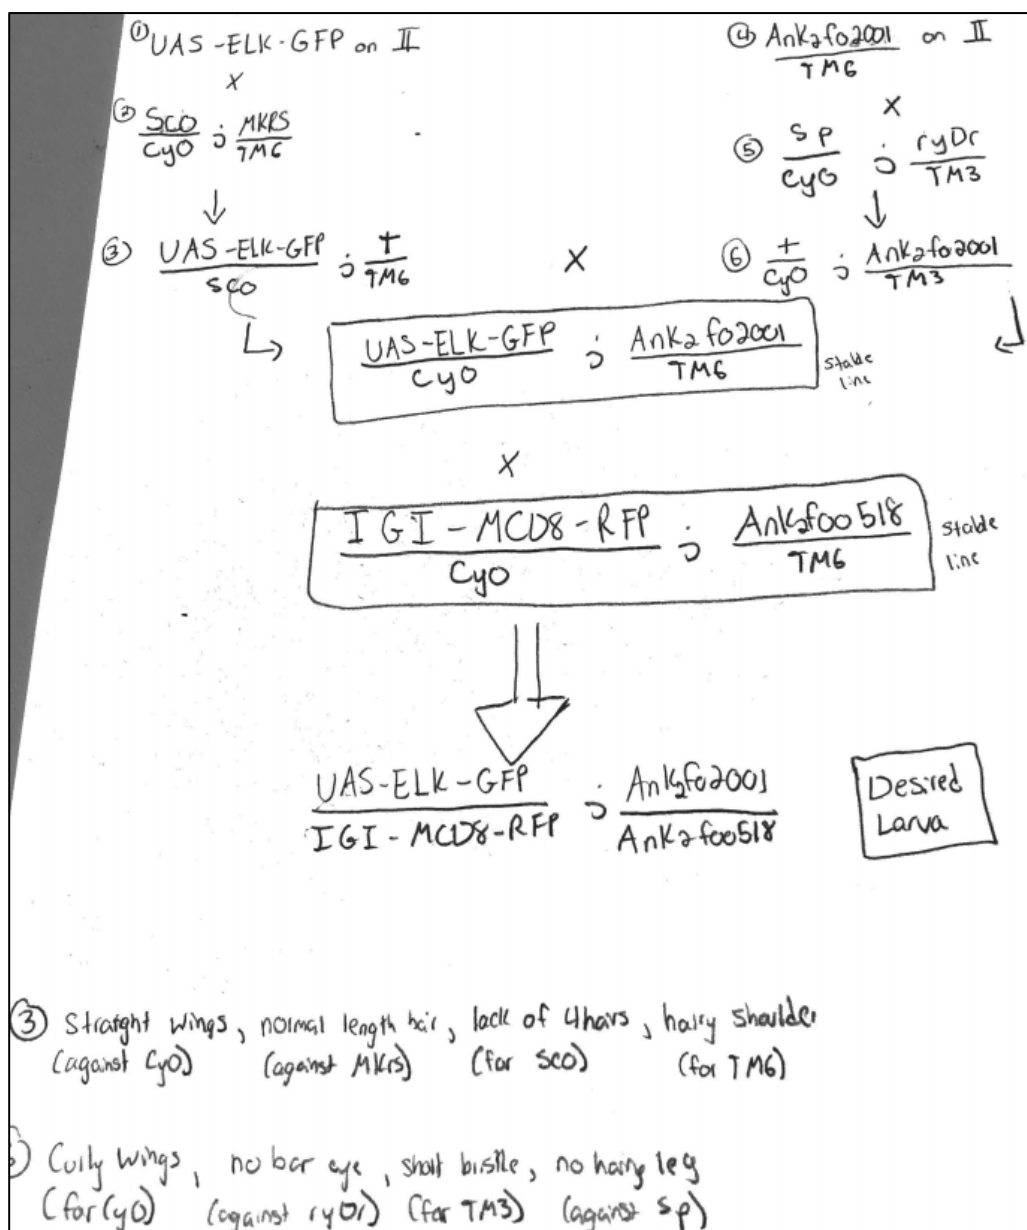 ① UAS-ELK-GFP on II
X
② Sco/CyO ; MKRS/TM6
↓
③ UAS-ELK-GFP/Sco ; +/TM6
④ Ank2f02001/TM6 on II
X
⑤ Sp/CyO ; ryDr/TM3
↓
⑥ +/CyO ; Ank2f02001/TM3
X
UAS-ELK-GFP/CyO ; Ank2f02001/TM6
Stable
line
X
IGI-MCD8-RFP/CyO ; Ank2f00518/TM6
Stable
line
UAS-ELK-GFP/IGI-MCD8-RFP ; Ank2f02001/Ank2f00518
Desired
Larva
③ Straight wings, normal length hair, lack of 4 hairs, hairy shoulder
(against CyO) (against MKrs) (for Sco) (for TM6)
Curly wings, no bar eye, short bristle, no hairy leg
(for CyO) (against ryDr) (for TM3) (against Sp)